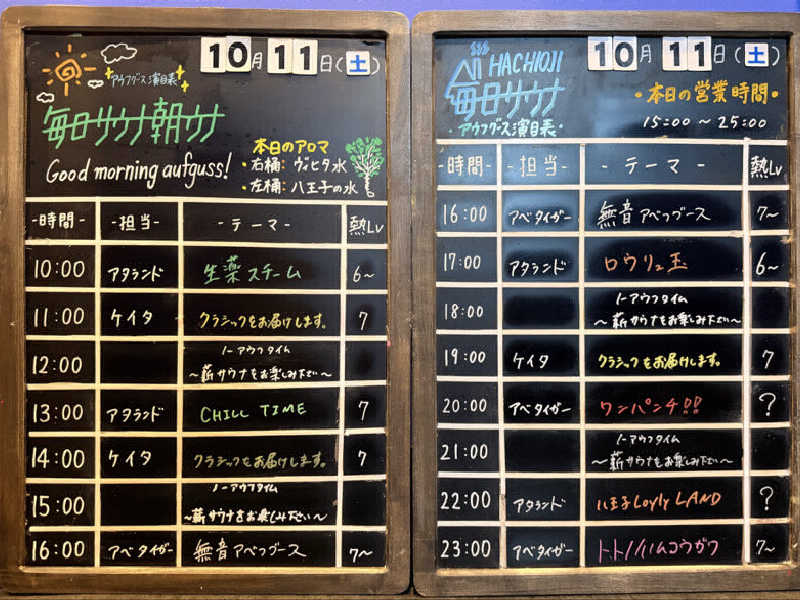 10月11日(土)
アウフグース演目表
毎日サウナ朝ウナ
Good morning aufguss!
本日のアロマ
・右桶: ヴィヒタ水
・左桶: 八王子の水
-時間- -担当- -テーマ- 熱Lv
10:00 アタランド 生薬スチーム 6~
11:00 ケイタ クラシックをお届けします。 7
12:00 ノーアウフタイム
~薪サウナをお楽しみ下さい~
13:00 アタランド CHILL TIME 7
14:00 ケイタ クラシックをお届けします。 7
15:00 ノーアウフタイム
~薪サウナをお楽しみ下さい~
16:00 アベタイガー 無音アベップグース 7~
HACHIOJI
毎日サウナ
・アウフグース演目表・
10月11日(土)
・本日の営業時間・
15:00~25:00
-時間- -担当- -テーマ- 熱Lv
16:00 アベタイガー 無音アベップグース 7~
17:00 アタランド ロウリュ玉 6~
18:00 ノーアウフタイム
~薪サウナをお楽しみ下さい~
19:00 ケイタ クラシックをお届けします。 7
20:00 アベタイガー ワンパンチ!! ?
21:00 ノーアウフタイム
~薪サウナをお楽しみ下さい~
22:00 アタランド 八王子Loyly LAND ?
23:00 アベタイガー トトノイハムコウガワ 7~